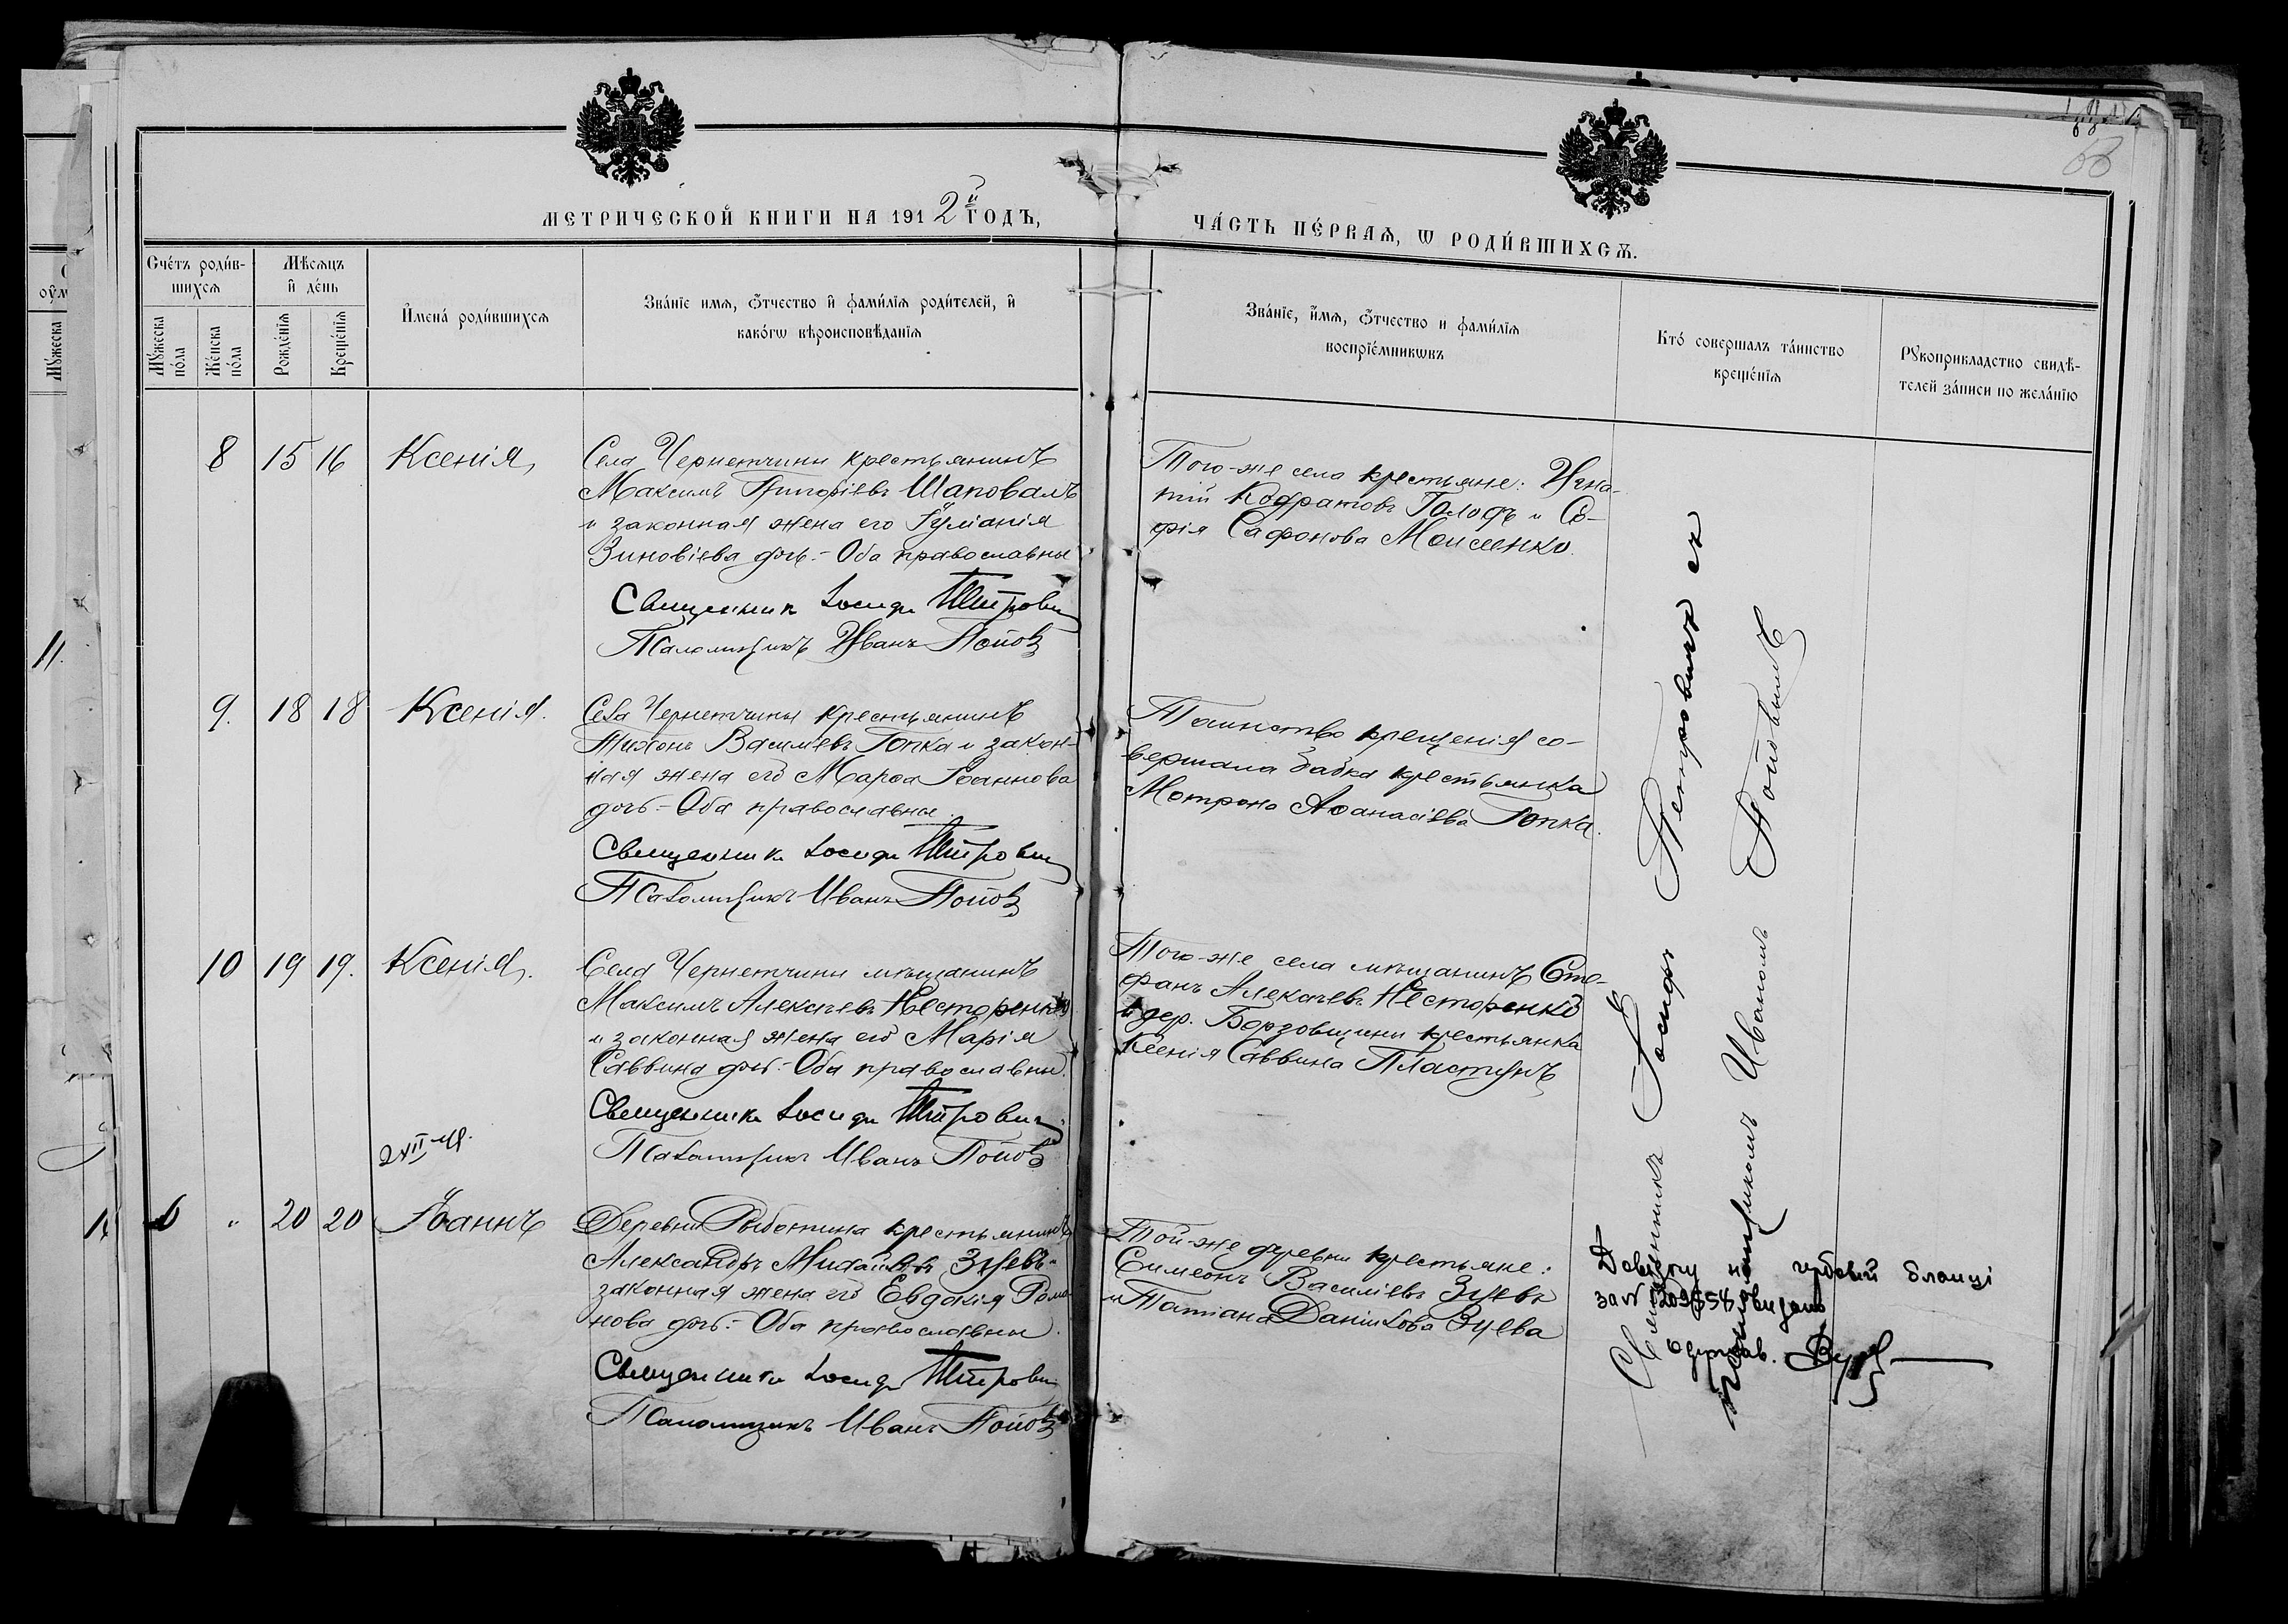 63
МЕТРИЧЕСКОЙ КНИГИ НА 1912й ГОДЪ,
ЧА́СТЬ ПЕ́РВАѦ, Ѡ РОДИ́ВШИХСѦ.
Сче́тъ роди́вшихсѧ
Мѣсѧцъ и де́нь
Мꙋ́жеска по́ла
Же́нска по́ла
Рожде́нїѧ
Креще́нїѧ
И҆мена̀ роди́вшихсѧ
Зва́нїе имѧ, ѻ҆́тчество и҆ фами́лїѧ роди́телей, и҆
како́гѡ вѣроисповѣ́данїѧ
Зва́нїе, и҆́мѧ, ѻ҆́тчество и фами́лїѧ
воспрїе́мникѡвъ
Кто́ соверша́лъ та́инство
креще́нїѧ
Рꙋкоприкладство свидѣ-
телей за́писи по жела́нїю
8 15 16 Ксенія,
Села Чернетчины крестьянинъ
Максимъ Григоріевъ Шаповалъ
и законная жена его Іуліанія
Зиновіева дочь.- Оба православны
Священникъ Іосифъ Петрович
Псаломщикъ Иванъ Попов
Того-же села крестьяне: Игна-
тій Кодратовъ Голодъ и Со-
фія Сафонова Моисеенко.
9. 18 18 Ксенія.
Села Чернетчины крестьянинъ
Тихонъ Васильевъ Гопка и закон-
ная жена его Марѳа Іоаннова
дочь - Оба православны.
Священникъ Іосифъ Петрович
Псаломщикъ Иванъ Попов
Таинство крещенія со-
вершала бабка крестьянка
Мотрона Аѳанасіева Гопка.
10 19 19. Ксенія,.
Села Чернетчины мѣщанинъ
Максимъ Алексѣевъ Несторенко
и законная жена его Марія
Саввина дочь.- Оба православны.
Священникъ Іосифъ Петрович
Псаломщикъ Иванъ Попов
Того-же села мѣщанинъ Сте-
фанъ Алексѣевъ Несторенко
и дер. Борзовщины крестьянка
Ксенія Саввина Пластунъ
6 " 20 20 Іоаннъ
Деревни Рыботина крестьянинъ
Александръ Михайловъ Зуевъ и
законная жена его Евдокія Рома-
нова дочь.- Оба православны.
Священникъ Іосифъ Петрович
Псаломщикъ Иванъ Попов
Той-же деревни крестьяне:
Симеонъ Василіевъ Зуевъ
и Татіана Даніилова Зуева
Священникъ Іосифъ Петровичъ съ
псаломщикомъ Иваномъ Поповымъ
Довідку на гербовій бланці
за № видано
одержав.
11.